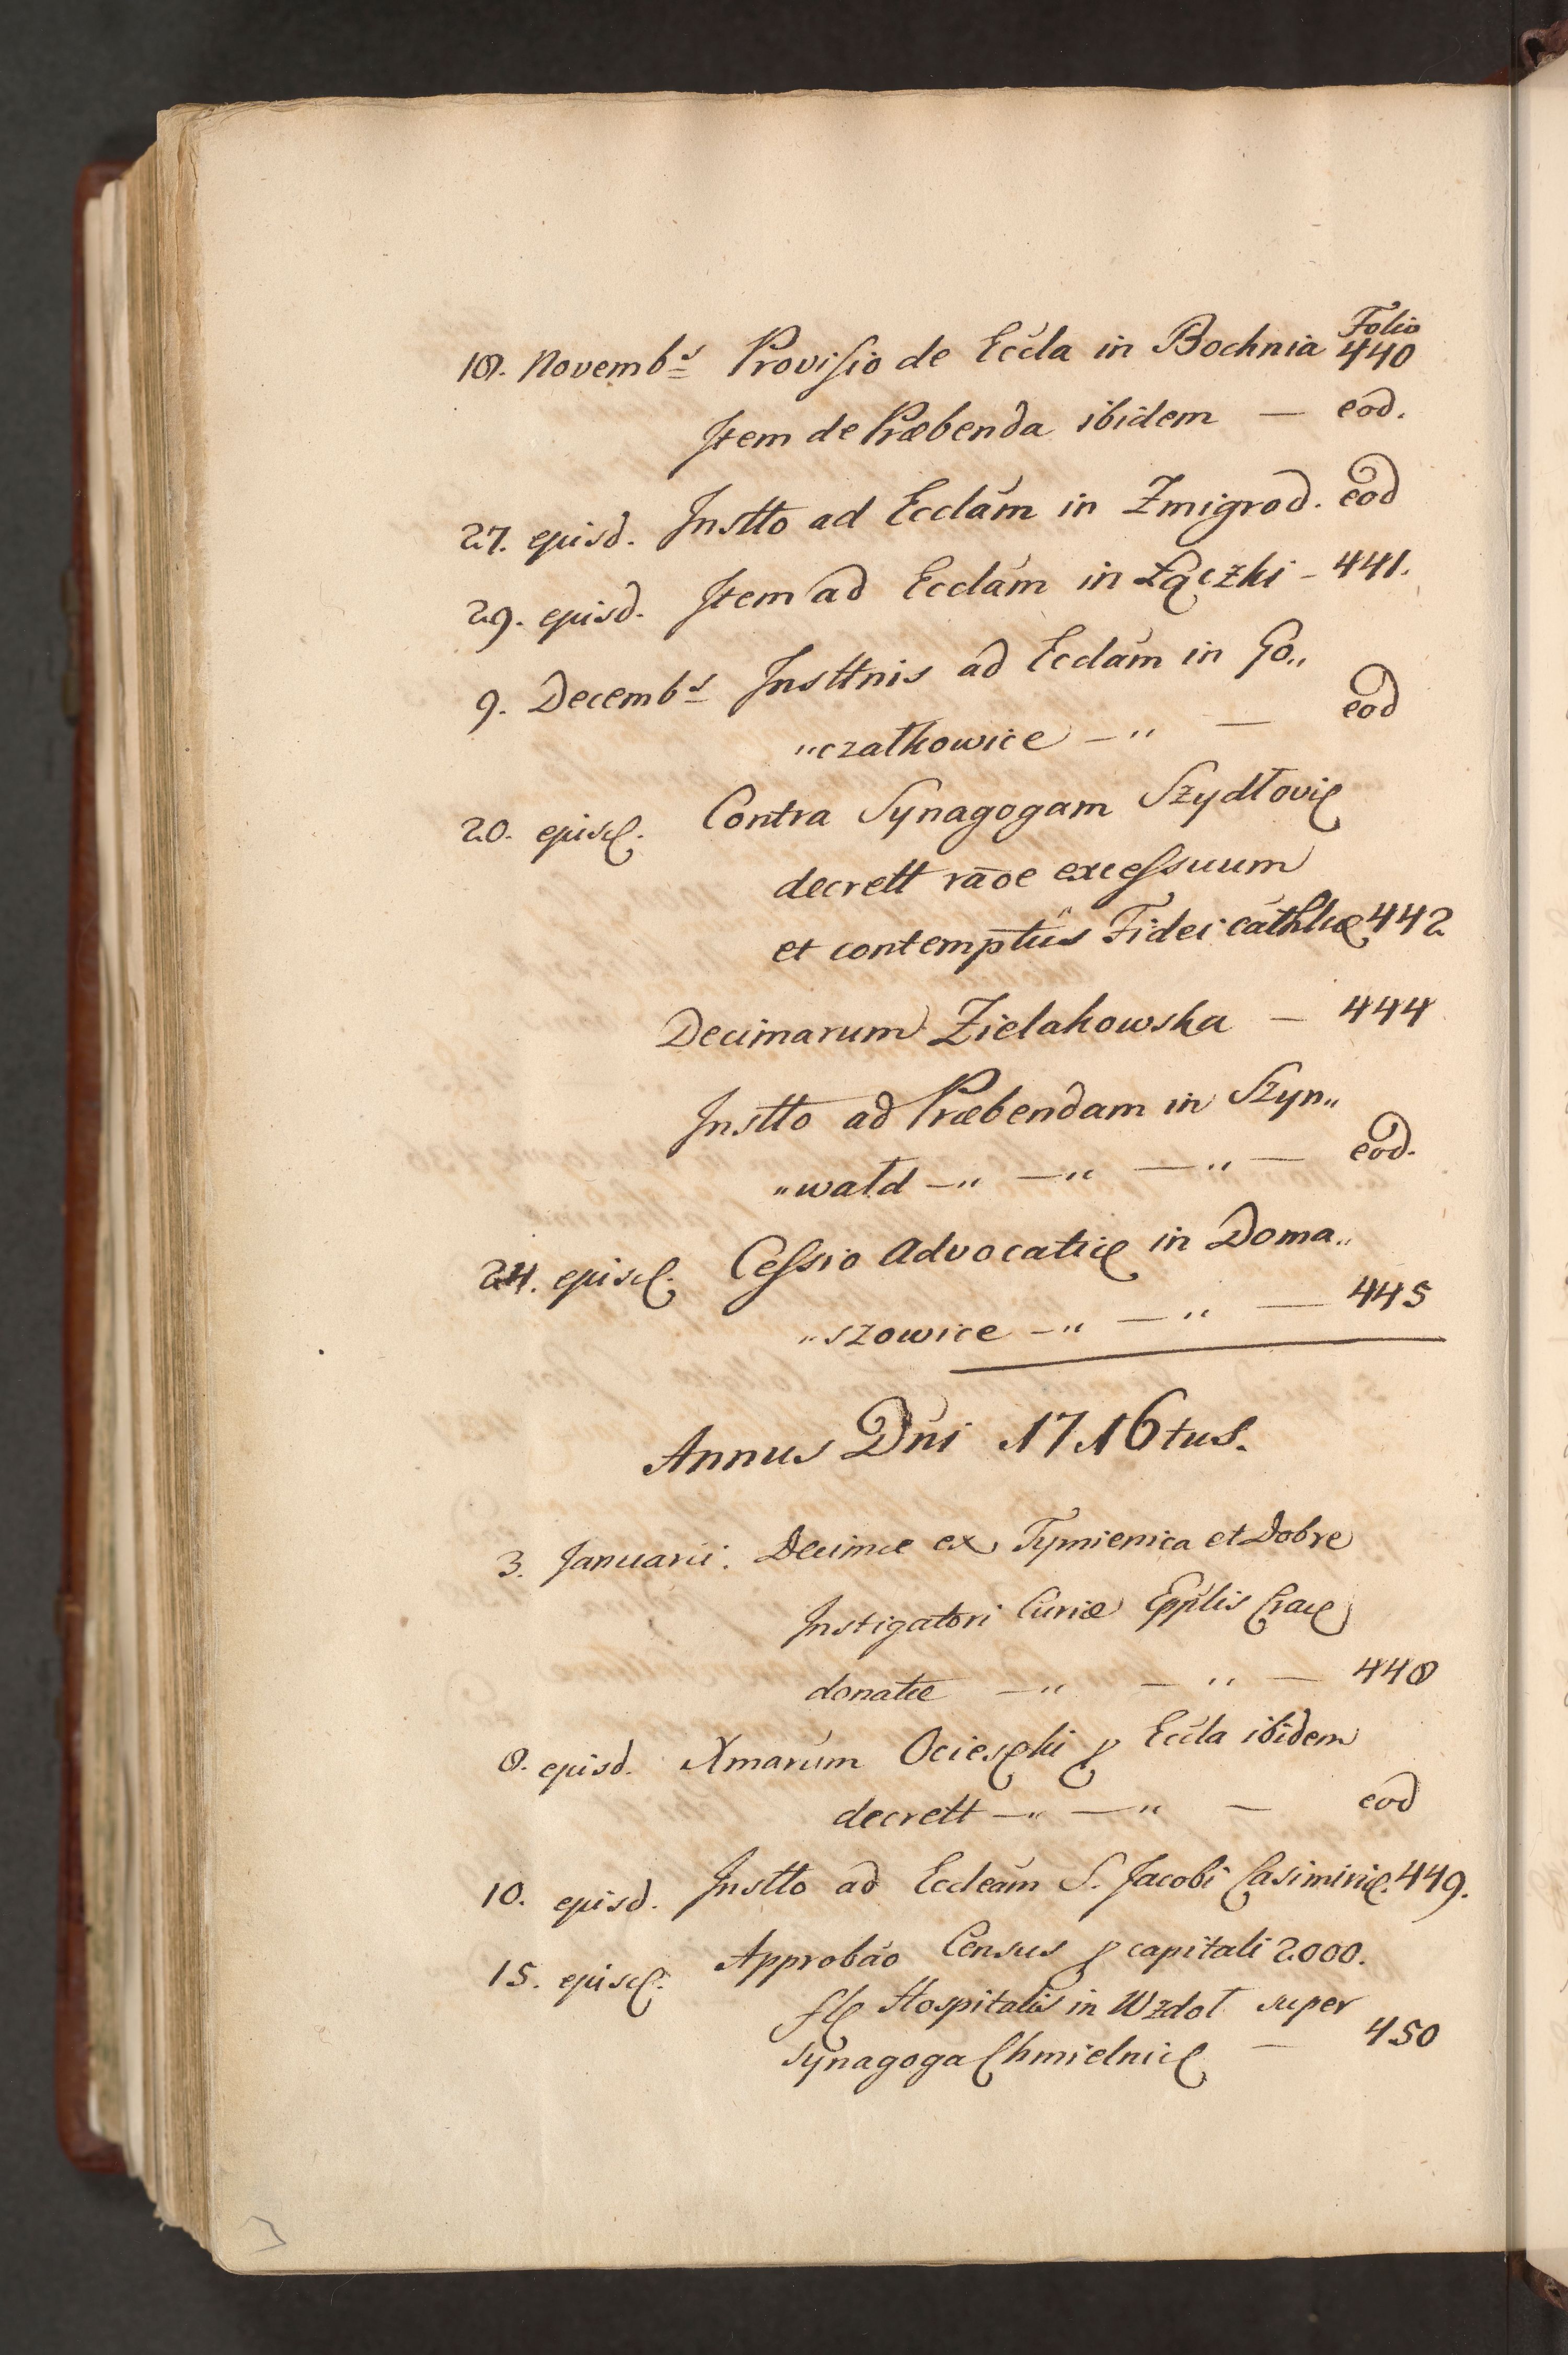 Folio
18. Novembs Provisio de Eccla in Bochnia 440
Item de Præbenda ibidem — eod.
27. ejusd. Instto ad Ecclam in Zmigrod. eod
29. ejusd. Item ad Ecclam in Łączki - 441.
9. Decembs Insttnis ad Ecclam in Go„
„czałkowice —„ — eod
20. ejusd. Contra Synagogam Szydłovie
decrett raoe excessuum
et contemptus Fidei cathlicæ 442
Decimarum Zielakowska — 444
Instto ad Præbendam in Szyn„
„wałd —„ —„ —„ — eod.
24. ejusd. Cessio Advocatiæ in Doma„
„szowice —„ —„ — 445
Annus Dni 1716tus.
3. Januarii. Decimæ ex Tymienica et Dobre
Instigatori Curiæ Epplis Crac
donatæ —„ —„ — 448
8. ejusd. Xmarum Ociesęki p Eccla ibidem
decrett —„ —„ — eod
10. ejusd. Instto ad Eccleam S. Jacobi Casimiriæ. 449.
15. ejusd. Approbao Census p capitali 2000.
fl Hospitalis in Wzdoł super
Synagoga Chmielnic — 450